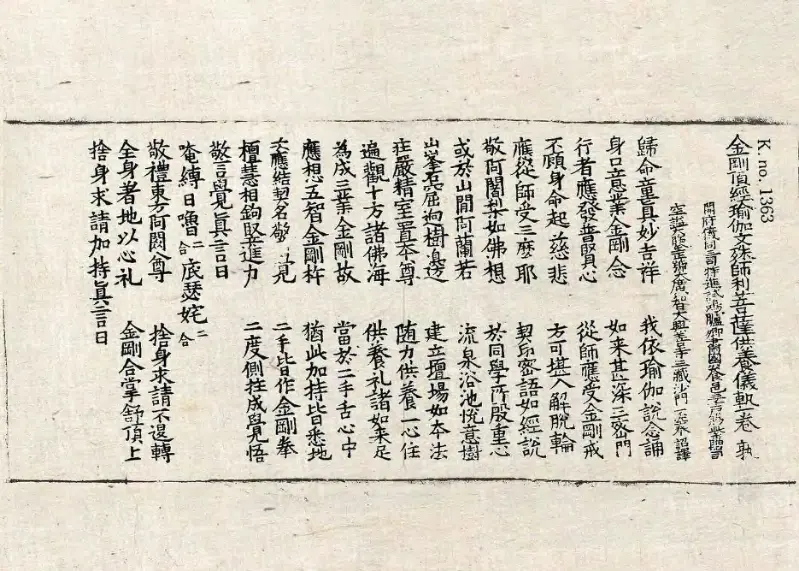 K. no. 1363
金剛頂經瑜伽文殊師利菩薩供養儀軌卷 孰
開府儀同三司特進試鴻臚卿肅國公食邑三千戶賜紫贈司
空謚大鑒正號大廣智大興善寺三藏沙門不空奉 詔譯
歸命童真妙吉祥 我依瑜伽說念誦
身口意業金剛念 如來甚深三密門
行者應發普賢心 從師應受金剛戒
不顧身命起慈悲 方可堪入解脫輪
應從師受三麽耶 契印密語如經說
敬阿闍梨如佛想 於同學所殷重心
或於山間阿蘭若 流泉浴池悅意樹
山峯石崛洞樹邊 建立壇場如本法
莊嚴精室置本尊 随力供養一心住
遍觀十方諸佛海 供養礼諸如来足
為成三業金剛故 當於二手舌心中
應想五智金剛杵 猶此加持皆悉地
次應結契名警覺 二手皆作金剛拳
檀慧相鉤竪進力 二度側拄成覺悟
警覺眞言曰
唵縛日嚕二合底瑟姹二合
敬禮東方阿閦尊 捨身求請不退轉
全身著地以心礼 金剛合掌舒頂上
捨身求請加持眞言曰